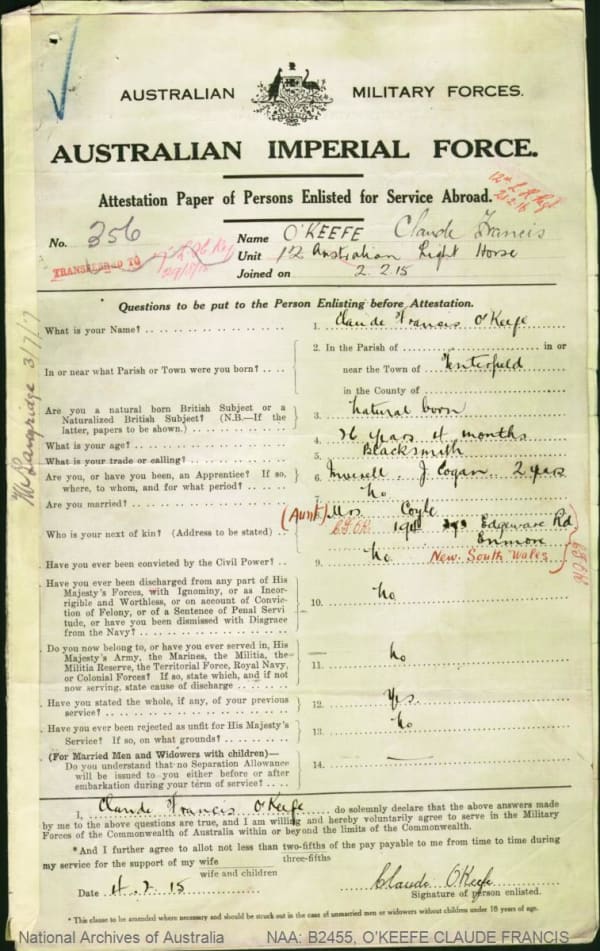 AUSTRALIAN MILITARY FORCES.
AUSTRALIAN IMPERIAL FORCE.
Attestation Paper of Persons Enlisted for Service Abroad.
12th L H Regt
No. 356
Name O'KEEFE Claude Francis
TRANSFERRED TO
Unit 12 Australian Light Horse
Joined on 2.2.15
Questions to be put to the Person Enlisting before Attestation.
What is your Name?
1. Claude Francis O'Keefe
In or near what Parish or Town were you born?
2. In the Parish of in or
near the Town of Tenterfield
in the County of
Are you a natural born British Subject or a
Naturalized British Subject? (N.B.—If the
latter, papers to be shown.)
3. natural born
What is your age?
4. 26 years 4 months
What is your trade or calling?
5. Blacksmith
Are you, or have you been, an Apprentice? If so,
where, to whom, and for what period?
6. Inverell J. Cogan 2 years
Are you married?
7. No
Who is your next of kin? (Address to be stated)
(Aunt) Mrs Coyle
Edgeware Rd
Enmore
New South Wales
Have you ever been convicted by the Civil Power?
9. No
Have you ever been discharged from any part of His
Majesty's Forces, with Ignominy, or as Incor-
rigible and Worthless, or on account of Convic-
tion of Felony, or of a Sentence of Penal Servi
tude, or have you been dismissed with Disgrace
from the Navy?
10. No
Do you now belong to, or have you ever served in, His
Majesty's Army, the Marines, the Militia, the
Militia Reserve, the Territorial Force, Royal Navy,
or Colonial Forces? If so, state which, and if not
now serving, state cause of discharge
11. No
Have you stated the whole, if any, of your previous
service?
12. Yes
Have you ever been rejected as unfit for His Majesty's
Service? If so, on what grounds?
13. No
(For Married Men and Widowers with children)—
Do you understand that no Separation Allowance
will be issued to you either before or after
embarkation during your term of service?
14. —
I, Claude Francis O'Keefe do solemnly declare that the above answers made
by me to the above questions are true, and I am willing and hereby voluntarily agree to serve in the Military
Forces of the Commonwealth of Australia within or beyond the limits of the Commonwealth.
*And I further agree to allot not less than two-fifths of the pay payable to me from time to time during
three-fifths
my service for the support of my wife
wife and children
Date 4.2.15
Claude O'Keefe
Signature of person enlisted.
* This clause to be amended where necessary and should be struck out in the case of unmarried men or widowers without children under 18 years of age.
National Archives of Australia NAA: B2455, O'KEEFE CLAUDE FRANCIS